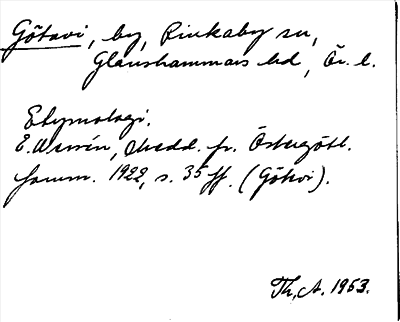 Götavi, by, Rinkaby sn,
Glanshammars hd, Ör. l.
Etymologi.
E. Wessén, Medd. fr. Östergötl.
fornm. 1922, s. 35 ff. (Götevi).
Th, A. 1953.